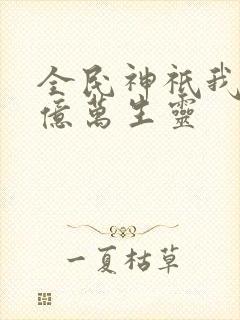 全民神祇我
億萬生靈
一夏枯草